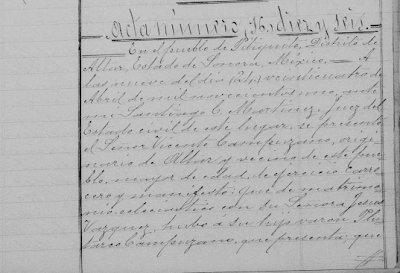 Acta número 16. diez y seis.
En el pueblo de Pitiquito, Distrito de
Altar, Estado de Sonora, México. — A
las nueve del día veinticuatro de
Abril de mil novecientos uno, ante
mi Santiago C. Martinez, Juez del
Estado civil de este lugar, se presentó
el Señor Vicente Campuzano, origi-
nario de Altar y vecino de este pue-
blo, mayor de edad, de ejercicio
y manifestó: que de matrimo-
nio eclesiástico con su Señora Jesus
Vazquez, hubo á su hijo varon
Campuzano, que presenta; que